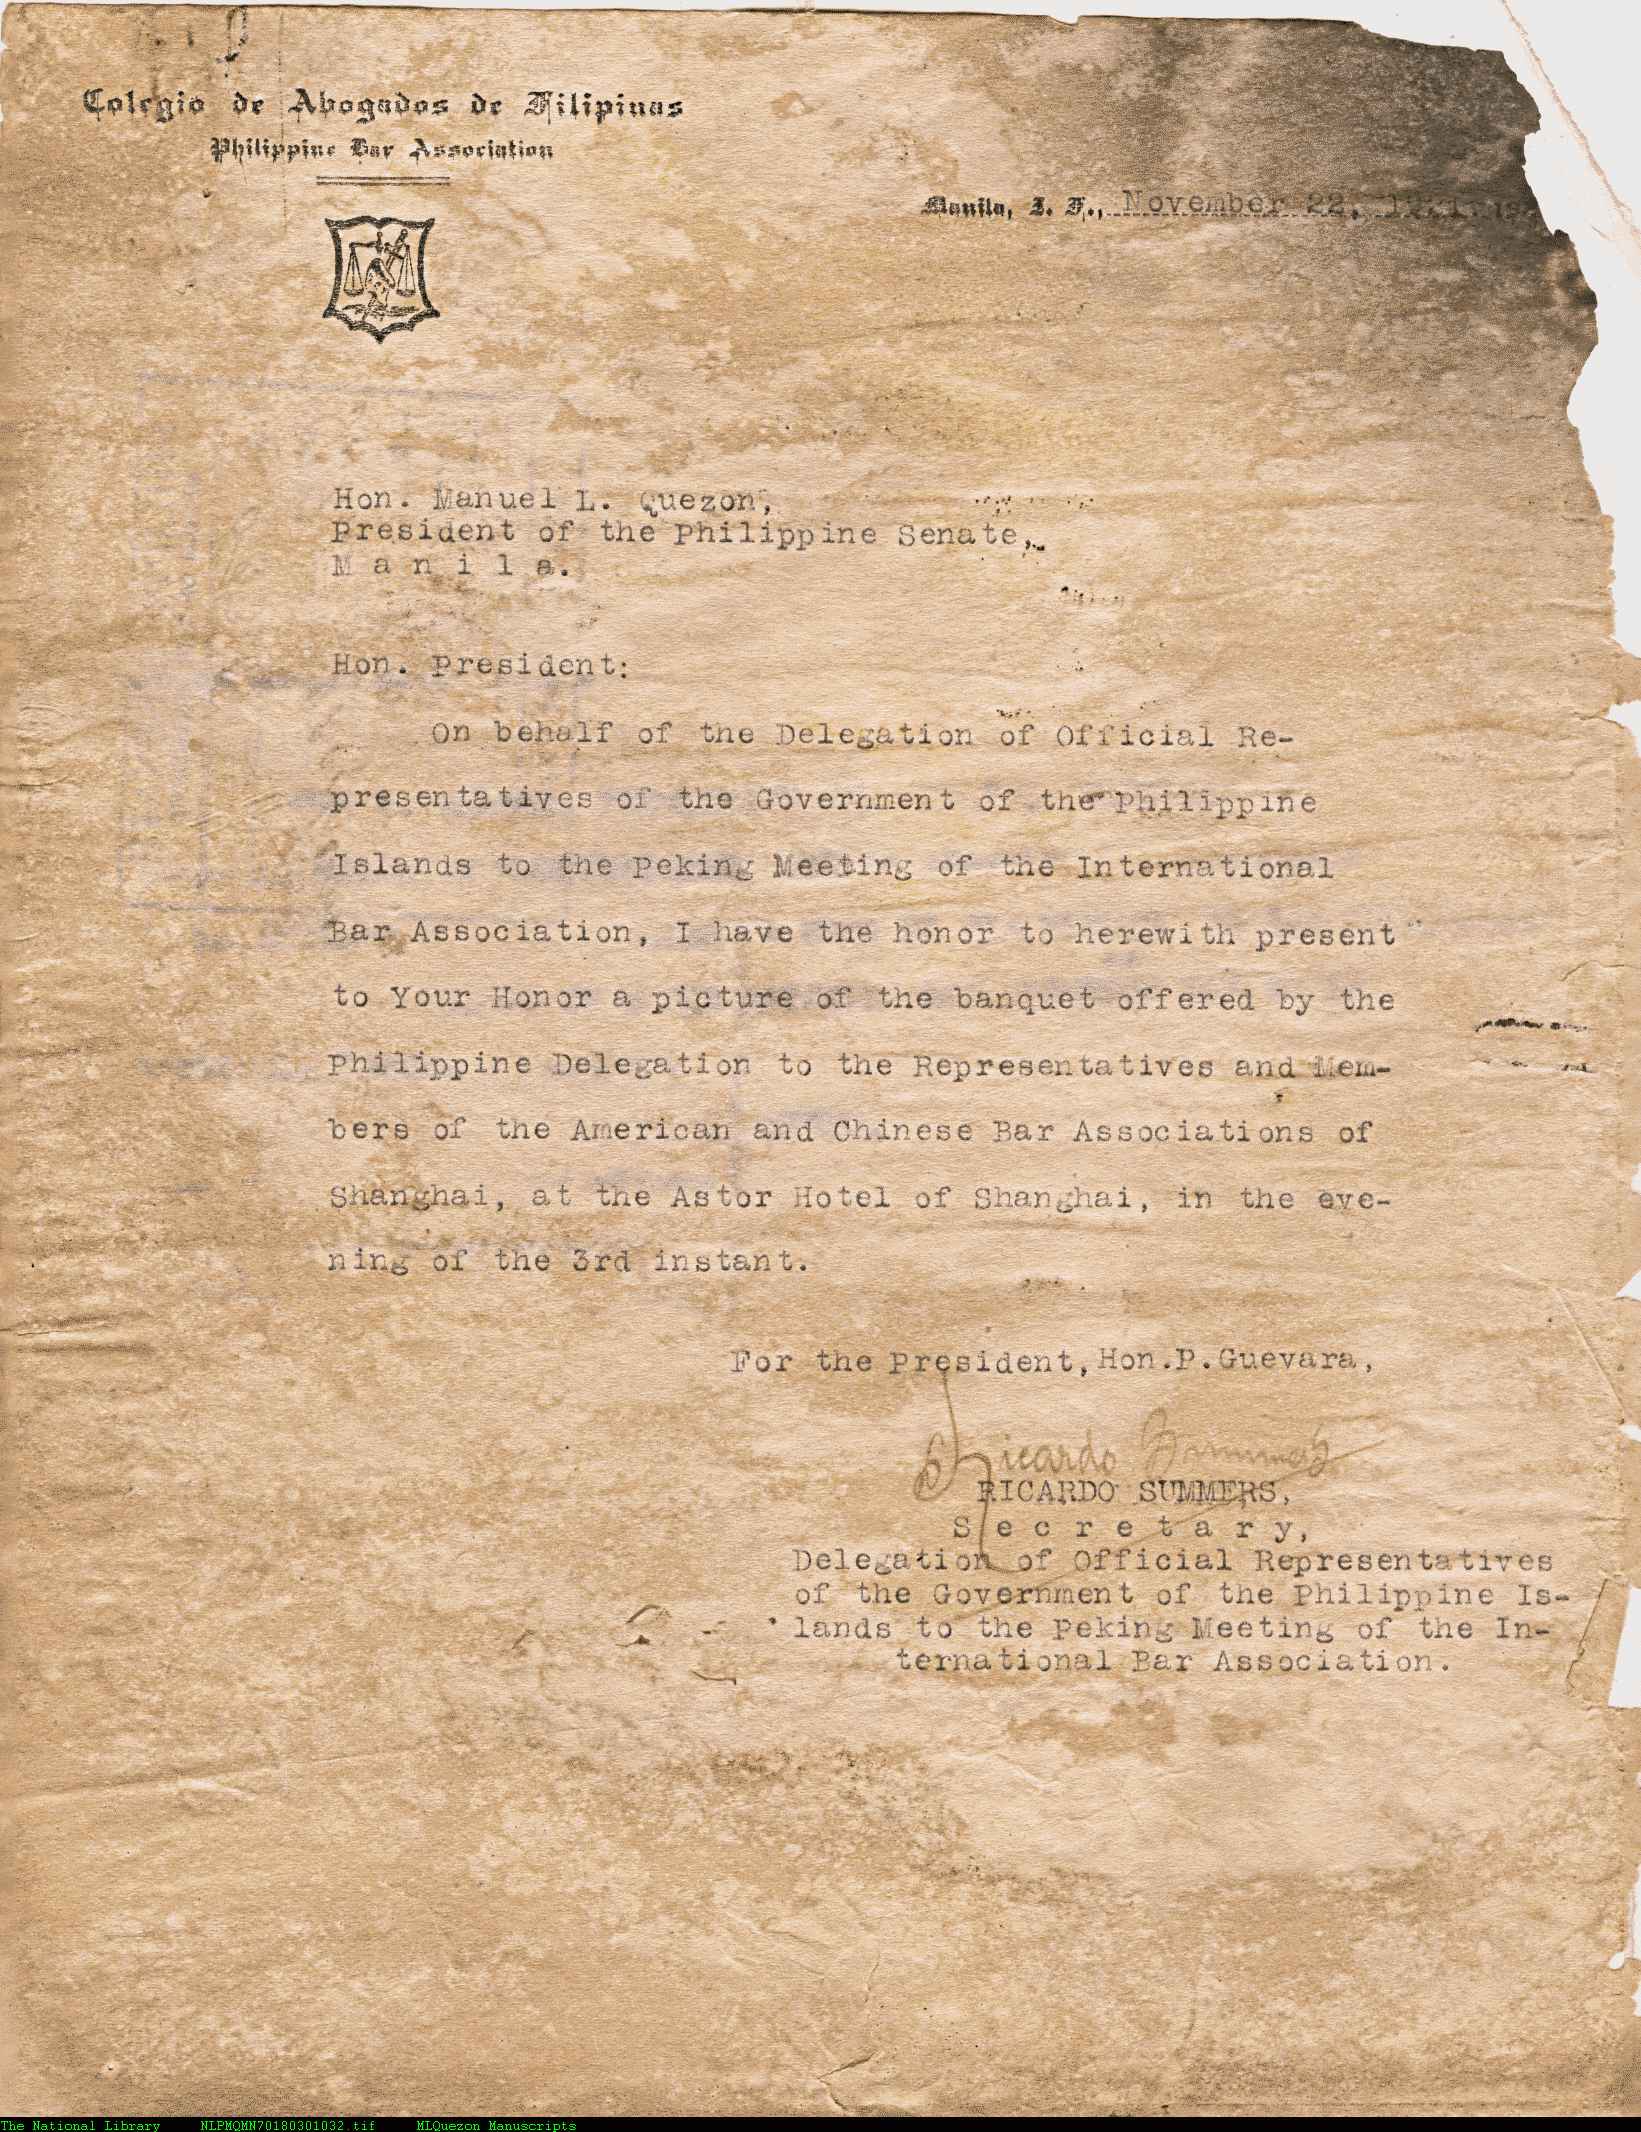 Colegio de Abogados de Filipinas
Philippine Bar Association
Manila, I. F., November 22, 1921.
Hon. Manuel L. Quezon,
President of the Philippine Senate,
M a n i l a.
Hon. President:
On behalf of the Delegation of Official Re-
presentatives of the Government of the Philippine
Islands to the Peking Meeting of the International
Bar Association, I have the honor to herewith present
to Your Honor a picture of the banquet offered by the
Philippine Delegation to the Representatives and Mem-
bers of the American and Chinese Bar Associations of
Shanghai, at the Astor Hotel of Shanghai, in the eve-
ning of the 3rd instant.
For the President, Hon.P.Guevara,
Ricardo Summers
RICARDO SUMMERS,
S e c r e t a r y,
Delegation of Official Representatives
of the Government of the Philippine Is-
lands to the Peking Meeting of the In-
ternational Bar Association.
The National Library NLPMQMN70180301032.tif MLQuezon Manuscripts